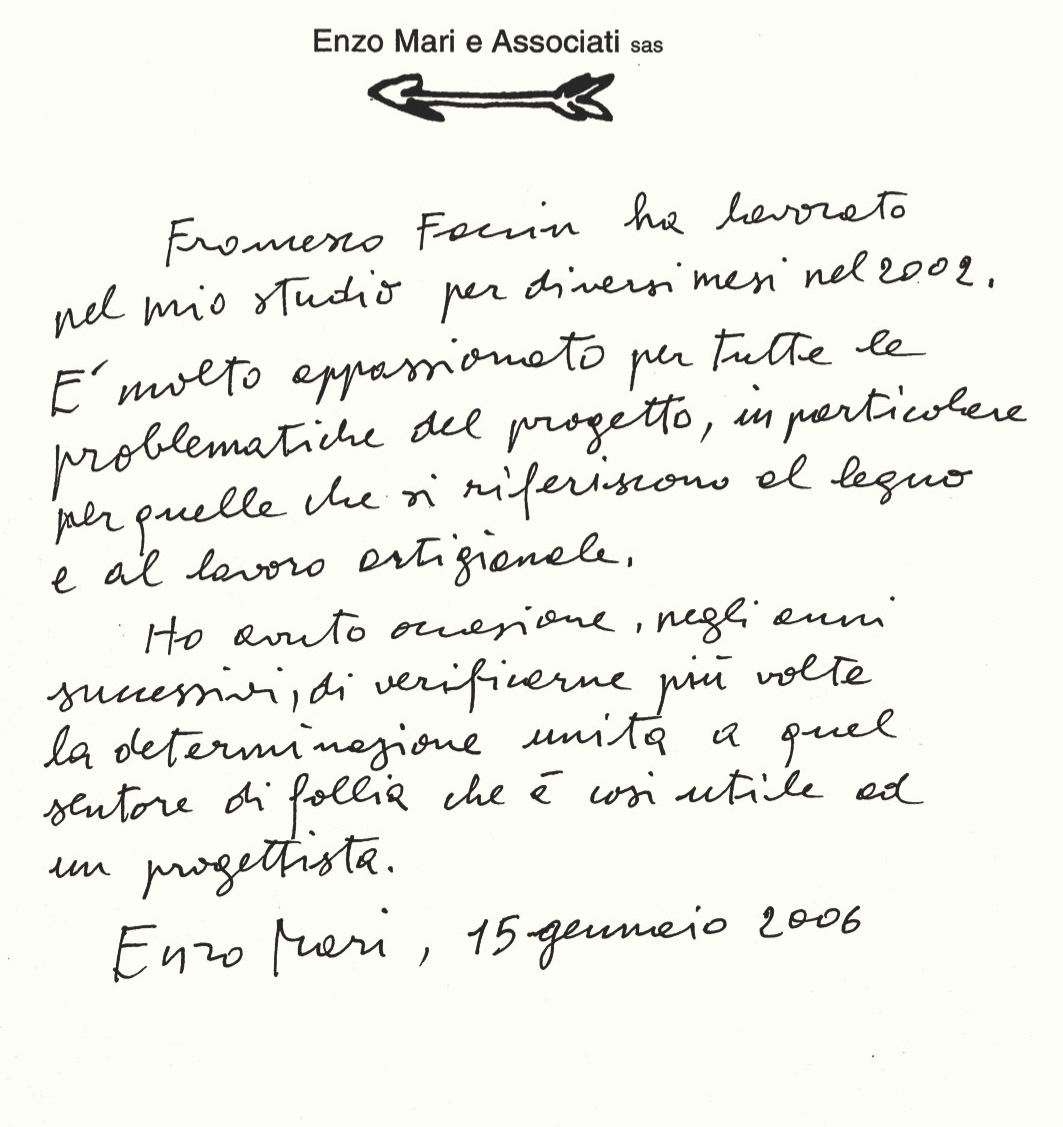 Enzo Mari e Associati sas
Francesco Faccin ha lavorato
nel mio studio per diversi mesi nel 2002.
E' molto appassionato per tutte le
problematiche del progetto, in particolare
per quelle che si riferiscono al legno
e al lavoro artigianale.
Ho avuto occasione, negli anni
successivi, di verificarne più volte
la determinazione unita a quel
sentore di follia che è così utile ad
un progettista.
Enzo Mari, 15 gennaio 2006